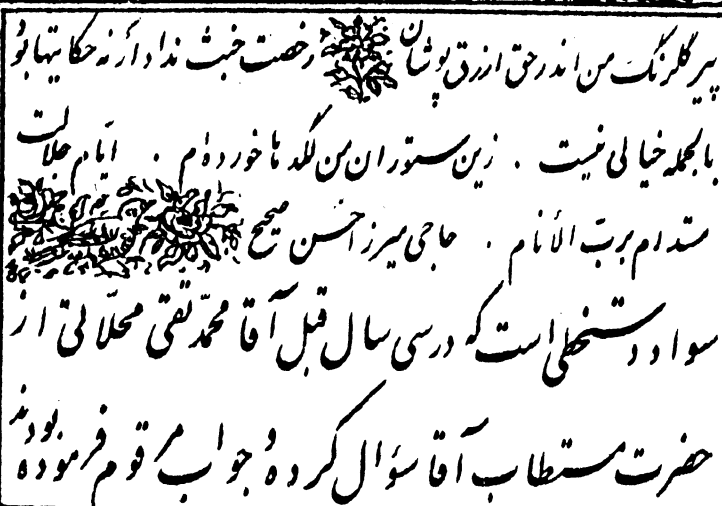 پیر گلرنگ من اندر حق ازرق پوشان رخصت خبث نداد ارنه حکایتها بود
بالجمله خیالی نیست . زین ستوران من لگدها خورده‌ام . ایام جلالت
مستدام برب الأنام . حاجی میرزا حسن صحیح
سواد دستخطی است که در سی سال قبل آقا محمّد تقی محلّاتی از
حضرت مستطاب آقا سؤال کرده و جواب مرقوم فرموده بودند